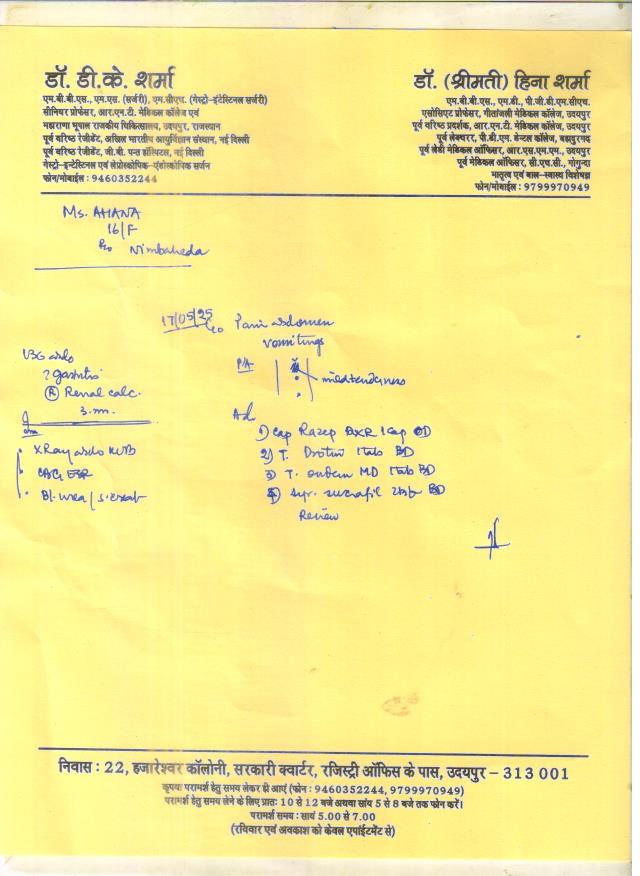 डॉ. डी.के. शर्मा
एम.बी.बी.एस., एम.एस. (सर्जरी), एम.सीएच. (गेस्ट्रो-इंटेस्टिनल सर्जरी)
सीनियर प्रोफेसर, आर.एन.टी. मेडिकल कॉलेज एवं
महाराणा भूपाल राजकीय चिकित्सालय, उदयपुर, राजस्थान
पूर्व वरिष्ठ रेजीडेंट, अखिल भारतीय आयुर्विज्ञान संस्थान, नई दिल्ली
पूर्व वरिष्ठ रेजीडेंट, जी.बी. पन्त हॉस्पिटल, नई दिल्ली
गेस्ट्रो-इन्टेस्टिनल एवं लेप्रोस्कोपिक-एंडोस्कोपिक सर्जन
फोन/मोबाईल : 9460352244
डॉ. (श्रीमती) हिना शर्मा
एम.बी.बी.एस., एम.डी., पी.जी.डी.एम.सीएच.
एसोसिएट प्रोफेसर, गीतांजली मेडिकल कॉलेज, उदयपुर
पूर्व वरिष्ठ प्रदर्शक, आर.एन.टी. मेडिकल कॉलेज, उदयपुर
पूर्व लेक्चरर, पी.डी.एम. डेन्टल कॉलेज, बहादुरगढ़
पूर्व लेडी मेडिकल ऑफिसर, आर.एस.एम.एम., उदयपुर
पूर्व मेडिकल ऑफिसर, सी.एच.सी., गोगुन्दा
मातृत्व एवं बाल-स्वास्थ्य विशेषज्ञ
फोन/मोबाईल : 9799970949
Ms. AHANA
16/F
R/o Nimbaheda
17/05/25
c/o Pain abdomen
vomitings
USG abdo
? gastritis
(R) Renal calc.
3 mm.
P/A
mild tenderness
Adv
1) Cap Razep DXR 1 Cap OD
2) T. Drotin 1 tab BD
3) T. ondem MD 1 tab BD
4) Syr. sucrafil BD
Review
X Ray abdo KUB
CBC, ESR
Bl. urea / S. creat
निवास : 22, हजारेश्वर कॉलोनी, सरकारी क्वार्टर, रजिस्ट्री ऑफिस के पास, उदयपुर – 313 001
कृपया परामर्श हेतु समय लेकर ही आएं (फोन : 9460352244, 9799970949)
परामर्श हेतु समय लेने के लिए प्रातः 10 से 12 बजे अथवा सांय 5 से 8 बजे तक फोन करें।
परामर्श समय : सायं 5.00 से 7.00
(रविवार एवं अवकाश को केवल एपॉइंटमेंट से)